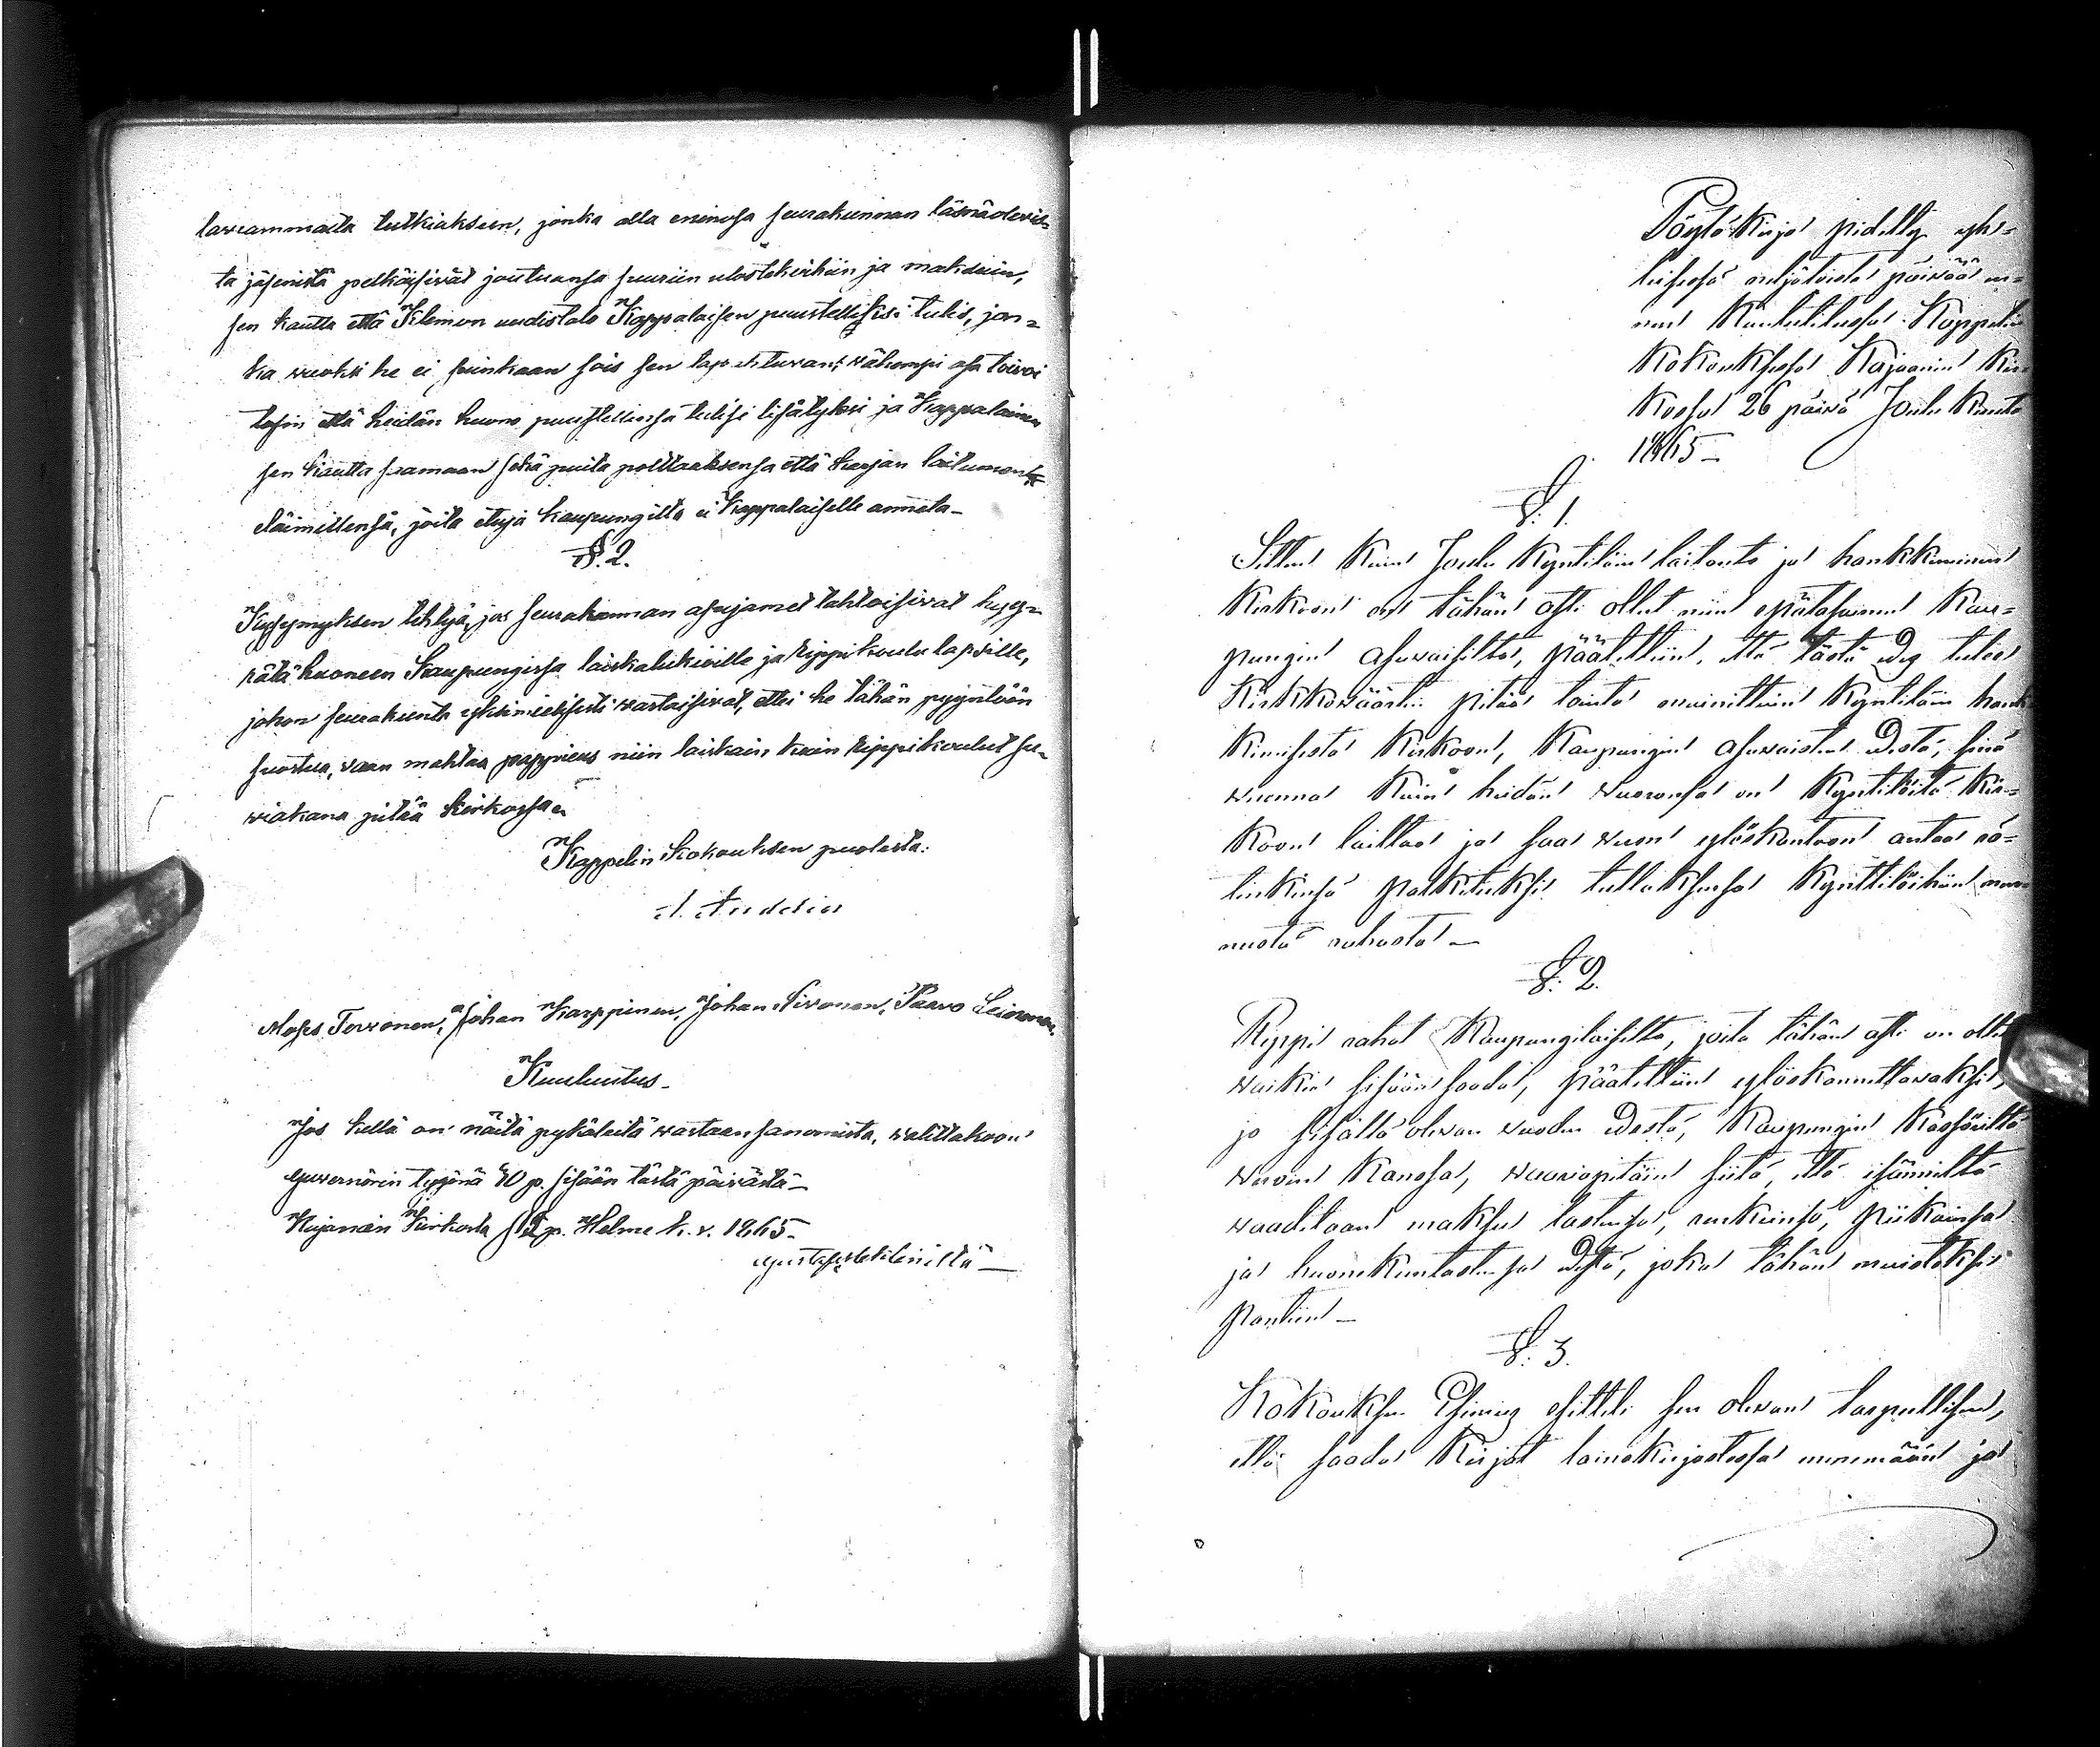 tawammalta tutkiaksen, jonka alla enimesä seurakunnan läsnäolevis=
ta jäsenistä pelkäisivät joutuansa suuriin ulostekoihin ja maksuin,
sen kautta että Klemun uudistalo Kappalaisen puustelliksi tulis, jon=
ka vuoksi he ei suinkaan sois sen tapahtuvan; vähempi osa toivoi
tosin että heidän huono puustellinsa tulisi lisätyksi ja Kappalainen
sen kautta saamaan sekä puita polttaaksensa että karjan laitumen
eläimillensä, joita etuja kaupungilta ei Kappalaiselle anneta_
§. 2.
Kysymyksen tehtyä, jos seurakunnan asujamet tahtoisivat hyy=
rätä huoneen Kaupungissa laiskalukioille ja rippikoulu lapsille,
johon seurakunta yksimielisesti vastaisivat, ettei he tähän pyyntöön
suostua, vaan mahtaa pappieus niin laiskain kuin rippikoulut su=
wiakana pitää kirkossa.
Kappelin Kokouksen puolesta:
Moses Tervonen, Johan Karppinen, Johan Sivonen, Paavo Leinonen.
Kuulutus_
Jos kellä on näitä pykäleitä vastaan sanomista, valittakoon
guvernörin tyyönä 30 p. sisään tästä päivästä_
Kajanin Kirkosta 12 p. Helme k. v. 1865_
Pöytäkirja pidetty yh=
teisesä neljätoista päivää en=
nen Kuulutetussa Kappelin
Kokouksesa Kajaanin Kir=
kossa 26 päivä Joulu Kuuta
1865_
§. 1.
Sitten kuin Joulu Kynttiläin laitanto ja hankkiminen
Kirkoon on tähän asti ollut niin epätasainen Kau=
pungin asuvaisilta, päätettiin, että tästä edes tulee
Kirkkoväärtin pitää vainittuin Kynttiläin hank=
kimisestä Kirkoon, Kaupungin asuvaisten edestä, sinä
vuonna kuin heidän vuoronsa on Kynttilöitä Kir=
koon laittaa ja saa vuon ylöskantoon antaa rä=
tinkinsä palkituksi tullaksensa Kynttilöihin men=
neestä rahasta_
§. 2.
Rippi rahat Kaupungilaisilta, joita tähän asti on ollut
vaikia sisään saada, päätettiin ylöskannettavaksi
jo sisällä olevan vuoden edestä, Kaupungin Kassöriltä
veroin kanssa, vuoropitäin siitä, että isänniltä
vaaditaan maksu lastensa, renkeinsä, piikainsa
ja huonekuntastensa edestä, joka tähän muistoksi
pantiin_
§. 3.
Kokouksen Esimies esitteli sen olevan tarpeellisen,
että saada Kirjat lainakirjastossa menemään ja